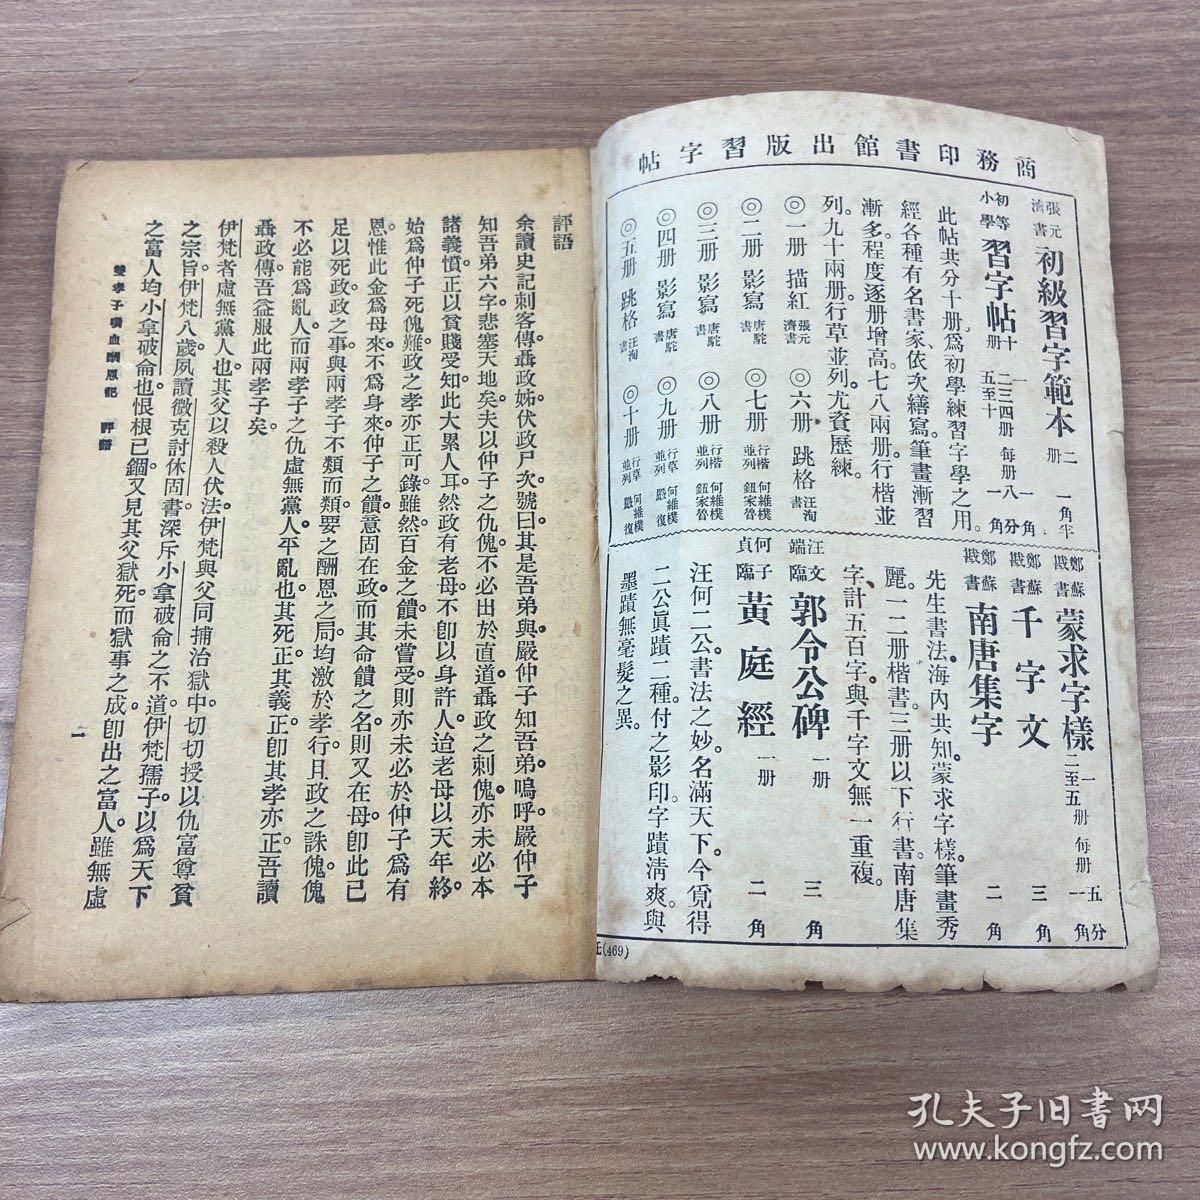 商務印書館出版習字帖
張元濟書 初級習字範本 二册 一角半
初等小學 習字帖 十册 一 一角 二三四册 每册八分 五至十 一角
此帖共分十册。爲初學練習字學之用。
經各種有名書家。依次繕寫。筆畫漸習
漸多。程度逐册增高。七八兩册。行楷並
列。九十兩册。行草並列。尤資歷練。
◎一册 描紅 張元濟書 ◎六册 跳格 汪洵書
◎二册 影寫 唐駝書 ◎七册 行楷並列 何維樸 鈕家魯
◎三册 影寫 唐駝書 ◎八册 行楷並列 何維樸 鈕家魯
◎四册 影寫 唐駝書 ◎九册 行草並列 何維樸 嚴復
◎五册 跳格 汪洵書 ◎十册 行草並列 何維樸 嚴復
鄭蘇戡書 蒙求字樣 一 五分 二至五册 每册一角
鄭蘇戡書 千字文 三角
鄭蘇戡書 南唐集字 二角
先生書法。海內共知。蒙求字樣。筆畫秀
麗。一二册楷書。三册以下行書。南唐集
字。計五百字。與千字文無一重複。
汪文端臨 郭令公碑 一册 三角
何子貞臨 黃庭經 一册 二角
汪何二公書法之妙。名滿天下。今覓得
二公眞蹟二種。付之影印。字蹟清爽。與
墨蹟無毫髮之異。
(469)
評語
余讀史記刺客傳。聶政姊伏政尸。次號曰。其是吾弟與。嚴仲子知吾弟。嗚呼。嚴仲子
知吾弟六字。悲塞天地矣。夫以仲子之仇傀。不必出於直道。聶政之刺傀。亦未必本
諸義憤。正以貧賤受知。此大累人耳。然政有老母。不卽以身許人。迨老母以天年終。
始爲仲子死傀難。政之孝亦正可錄。雖然百金之饋未嘗受。則亦未必於仲子爲有
恩。惟此金爲母來。不爲身來。仲子之饋。意固在政。而其命饋之名。則又在母。卽此已
足以死政。政之事與兩孝子不類而類。要之酬恩之局。均激於孝行。且政之誅傀。傀
不必能爲亂人。而兩孝子之仇虛無黨人。平亂也。其死正。其義正。卽其孝亦正。吾讀
聶政傳。吾益服此兩孝子矣。
伊梵者。虛無黨人也。其父以殺人伏法。伊梵與父同捕治。獄中切切授以仇富尊貧
之宗旨。伊梵八歲。夙讀微克討休固書。深斥小拿破侖之不道。伊梵孺子。以爲天下
之富人。均小拿破侖也。恨根已錮。又見其父獄死。而獄事之成。卽出之富人。雖無虛
雙孝子噀血酬恩記 評語
二
孔夫子旧书网
www.kongfz.com